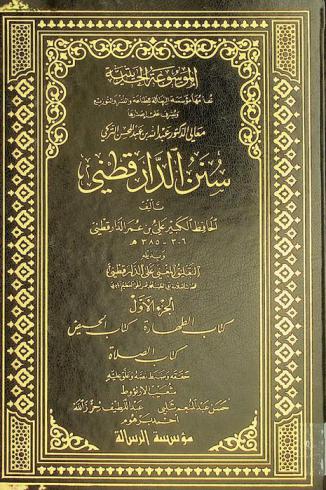 الموسوعة الحديثية
تقدمها مؤسسة الرسالة للطباعة والنشر والتوزيع
ويشرف على إصدارها
معالي الدكتور عبد الله بن عبد المحسن التركي
سنن الدارقطني
تأليف
الحافظ الكبير علي بن عمر الدارقطني
٣٠٦ - ٣٨٥ هـ
وبذيله
التعليق المغني على الدارقطني
الجزء الأول
كتاب الطهارة كتاب الحيض
كتاب الصلاة
حققه وضبط نصه وعلق عليه
شعيب الارنؤوط
حسن عبد المنعم شلبي عبد اللطيف حرز الله
أحمد برهوم
مؤسسة الرسالة